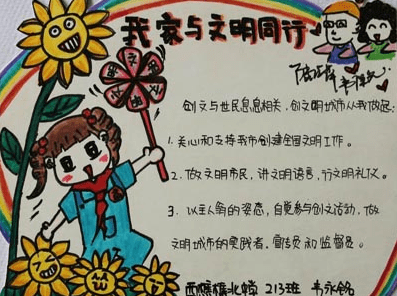 我家与文明同行
创文与世民息息相关，创文明城市从我做起：
1. 关心和支持我市创建全国文明工作。
2. 做文明市民，讲文明语言，行文明礼仪。
3. 以主人翁的姿态，自觉参与创文活动，做
文明城市的实践者，宣传员和监督员。
213班 韦永铭